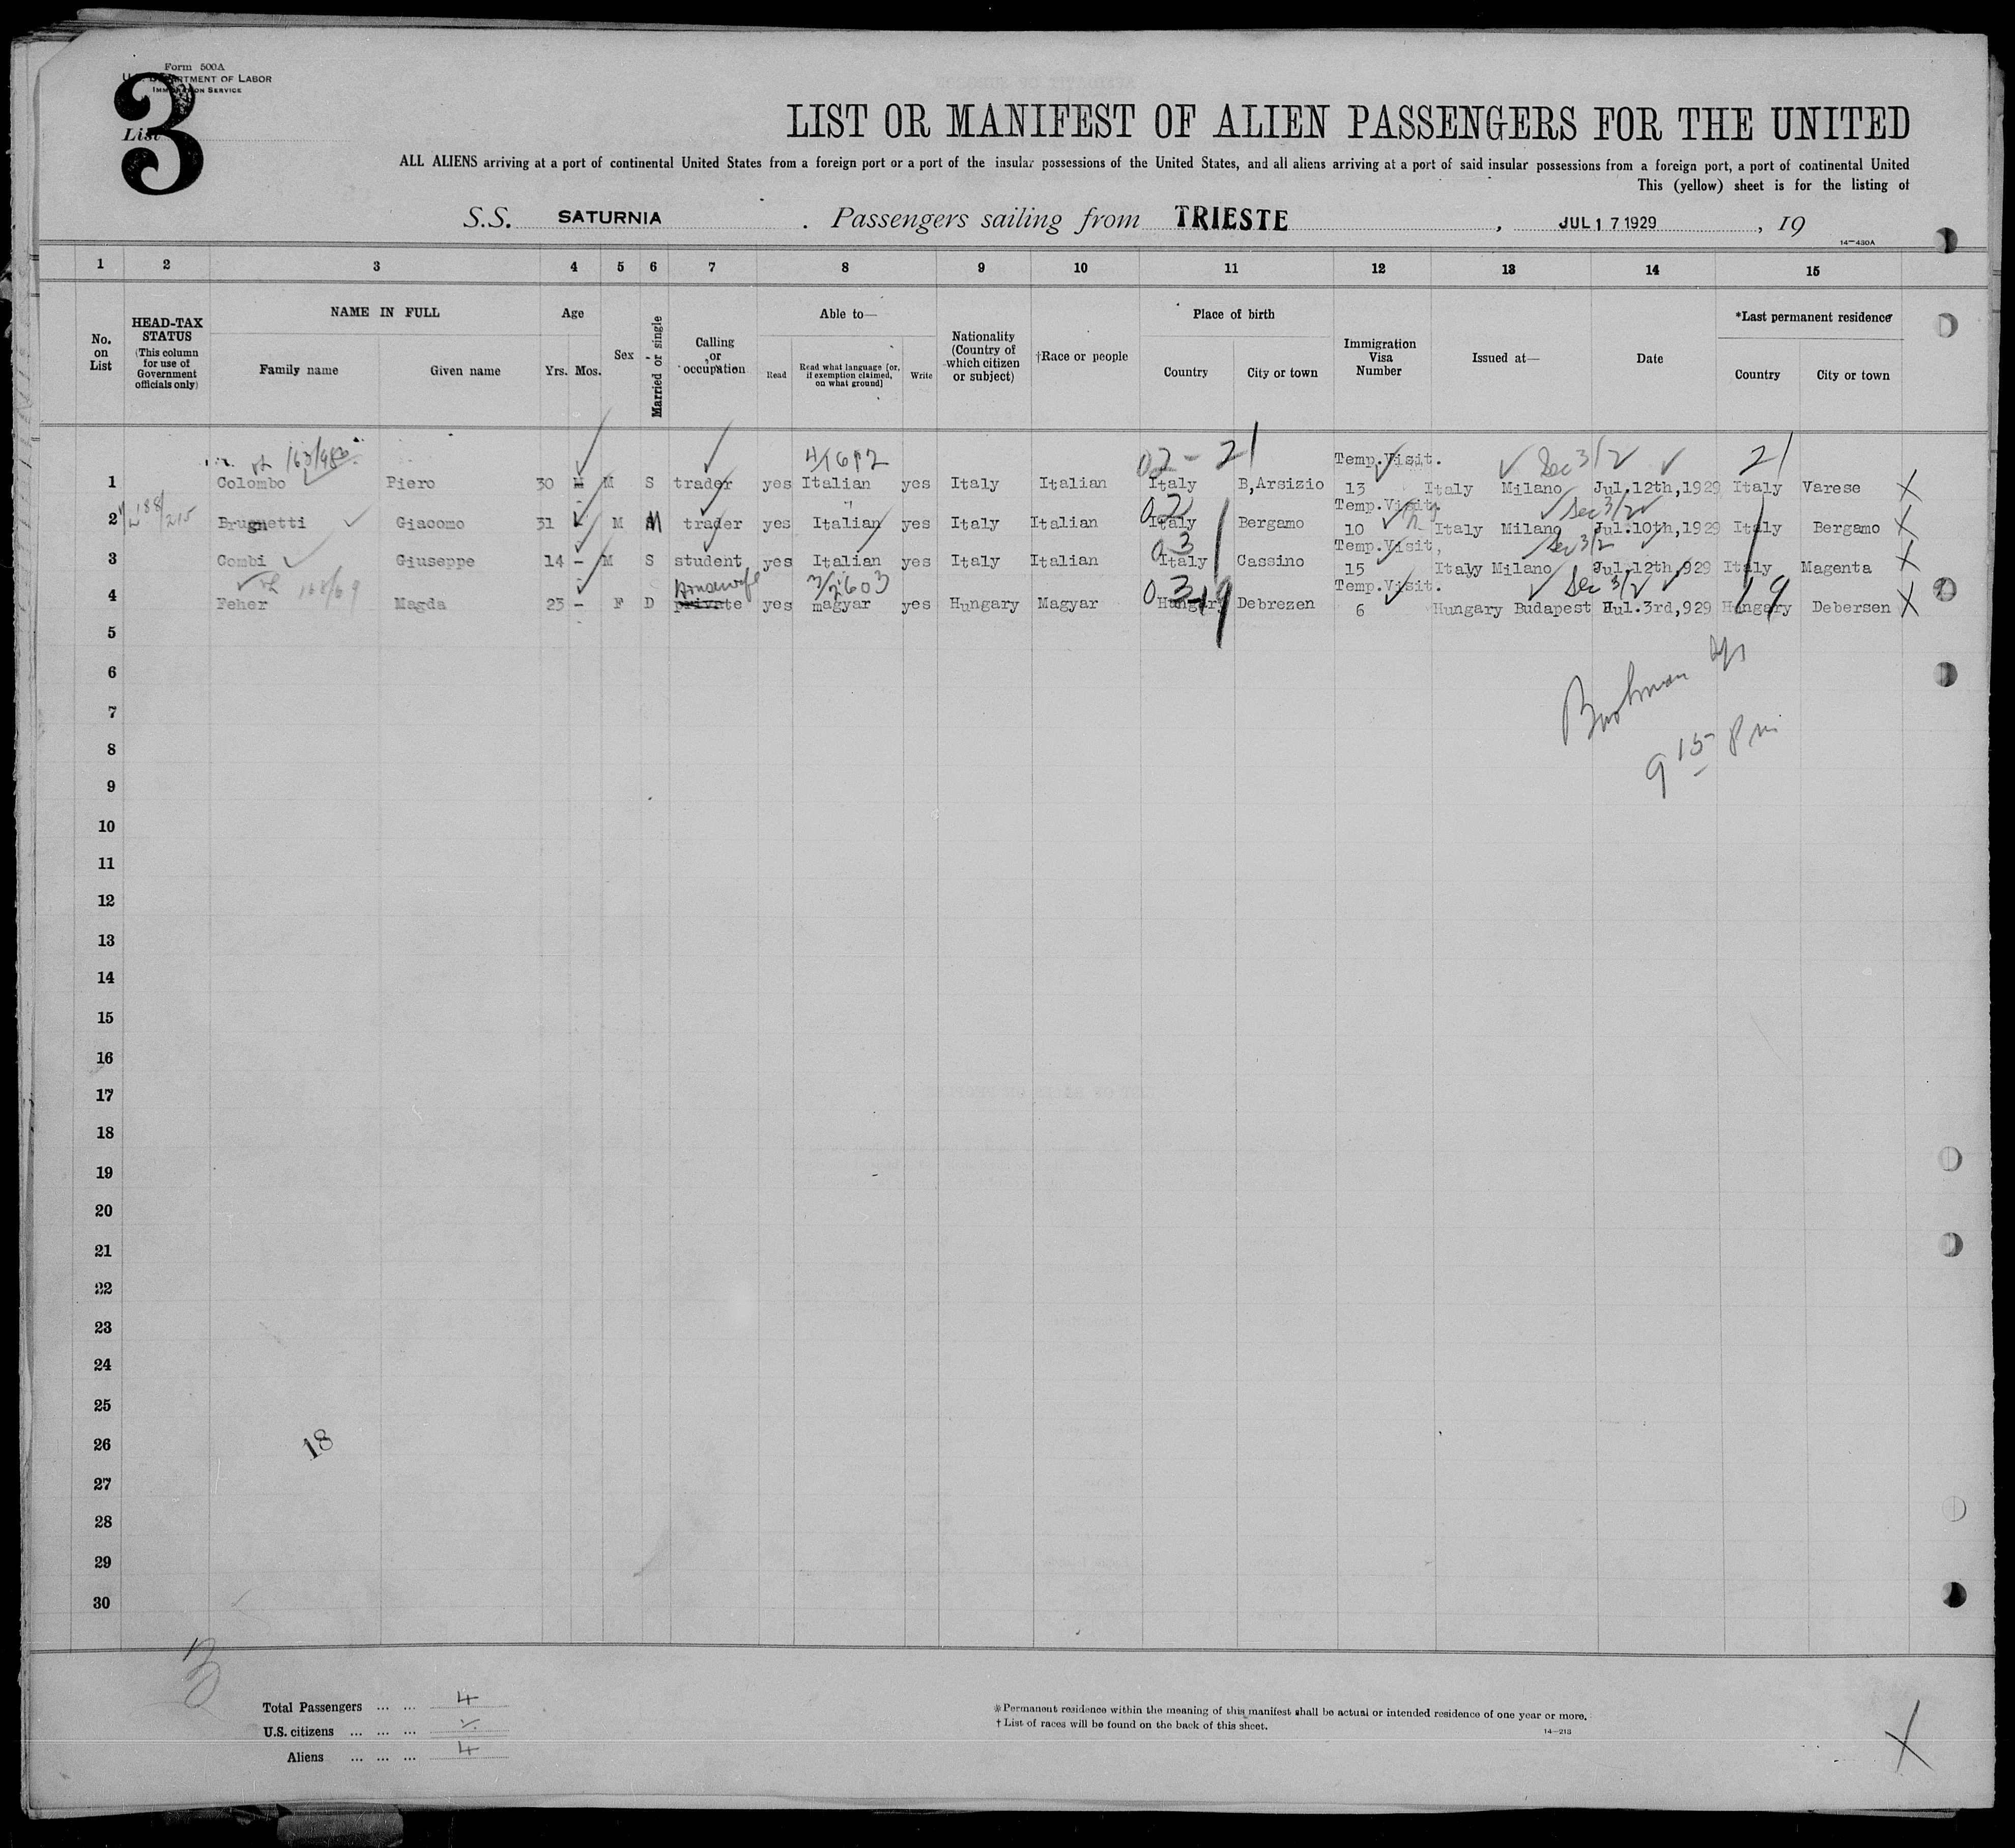 Form 500A
U.S. DEPARTMENT OF LABOR
IMMIGRATION SERVICE
List 3
LIST OR MANIFEST OF ALIEN PASSENGERS FOR THE UNITED
ALL ALIENS arriving at a port of continental United States from a foreign port or a port of the insular possessions of the United States, and all aliens arriving at a port of said insular possessions from a foreign port, a port of continental United
This (yellow) sheet is for the listing of
S.S. SATURNIA . Passengers sailing from TRIESTE , JUL 17 1929 , 19
14—430A
1 2 3 4 5 6 7 8 9 10 11 12 13 14 15
No. on List
HEAD-TAX STATUS (This column for use of Government officials only)
NAME IN FULL
Family name Given name
Age
Yrs. Mos.
Sex
Married or single
Calling or occupation
Able to—
Read Read what language [or, if exemption claimed, on what ground] Write
Nationality (Country of which citizen or subject)
†Race or people
Place of birth
Country City or town
Immigration Visa Number
Issued at—
Date
*Last permanent residence
Country City or town
163/486 4/1612 02 - 21 Temp.Visit. Sec 3/2 21
1 Colombo Piero 30 M S trader yes Italian yes Italy Italian Italy B,Arsizio 13 Italy Milano Jul.12th,1929 Italy Varese X
188/215 02 Temp.Visit. Sec 3/2
2 Brugnetti Giacomo 31 - M M trader yes Italian yes Italy Italian Italy Bergamo 10 Italy Milano Jul.10th,1929 Italy Bergamo X
03 Temp.Visit, Sec 3/2
3 Combi Giuseppe 14 - M S student yes Italian yes Italy Italian Italy Cassino 15 Italy Milano Jul.12th,929 Italy Magenta X
168/69 Housewife 3/2603 03-19 Temp.Visit. Sec 3/2 19
4 Feher Magda 23 - F D private yes magyar yes Hungary Magyar Hungary Debrezen 6 Hungary Budapest Hul.3rd,929 Hungary Debersen X
5
6
7
8
9
9 15 P m
10
11
12
13
14
15
16
17
18
19
20
21
22
23
24
25
26
18
27
28
29
30
3
Total Passengers ... ... 4
U.S. citizens ... ... ...
Aliens ... ... ... 4
*Permanent residence within the meaning of this manifest shall be actual or intended residence of one year or more.
† List of races will be found on the back of this sheet.
14—213
X